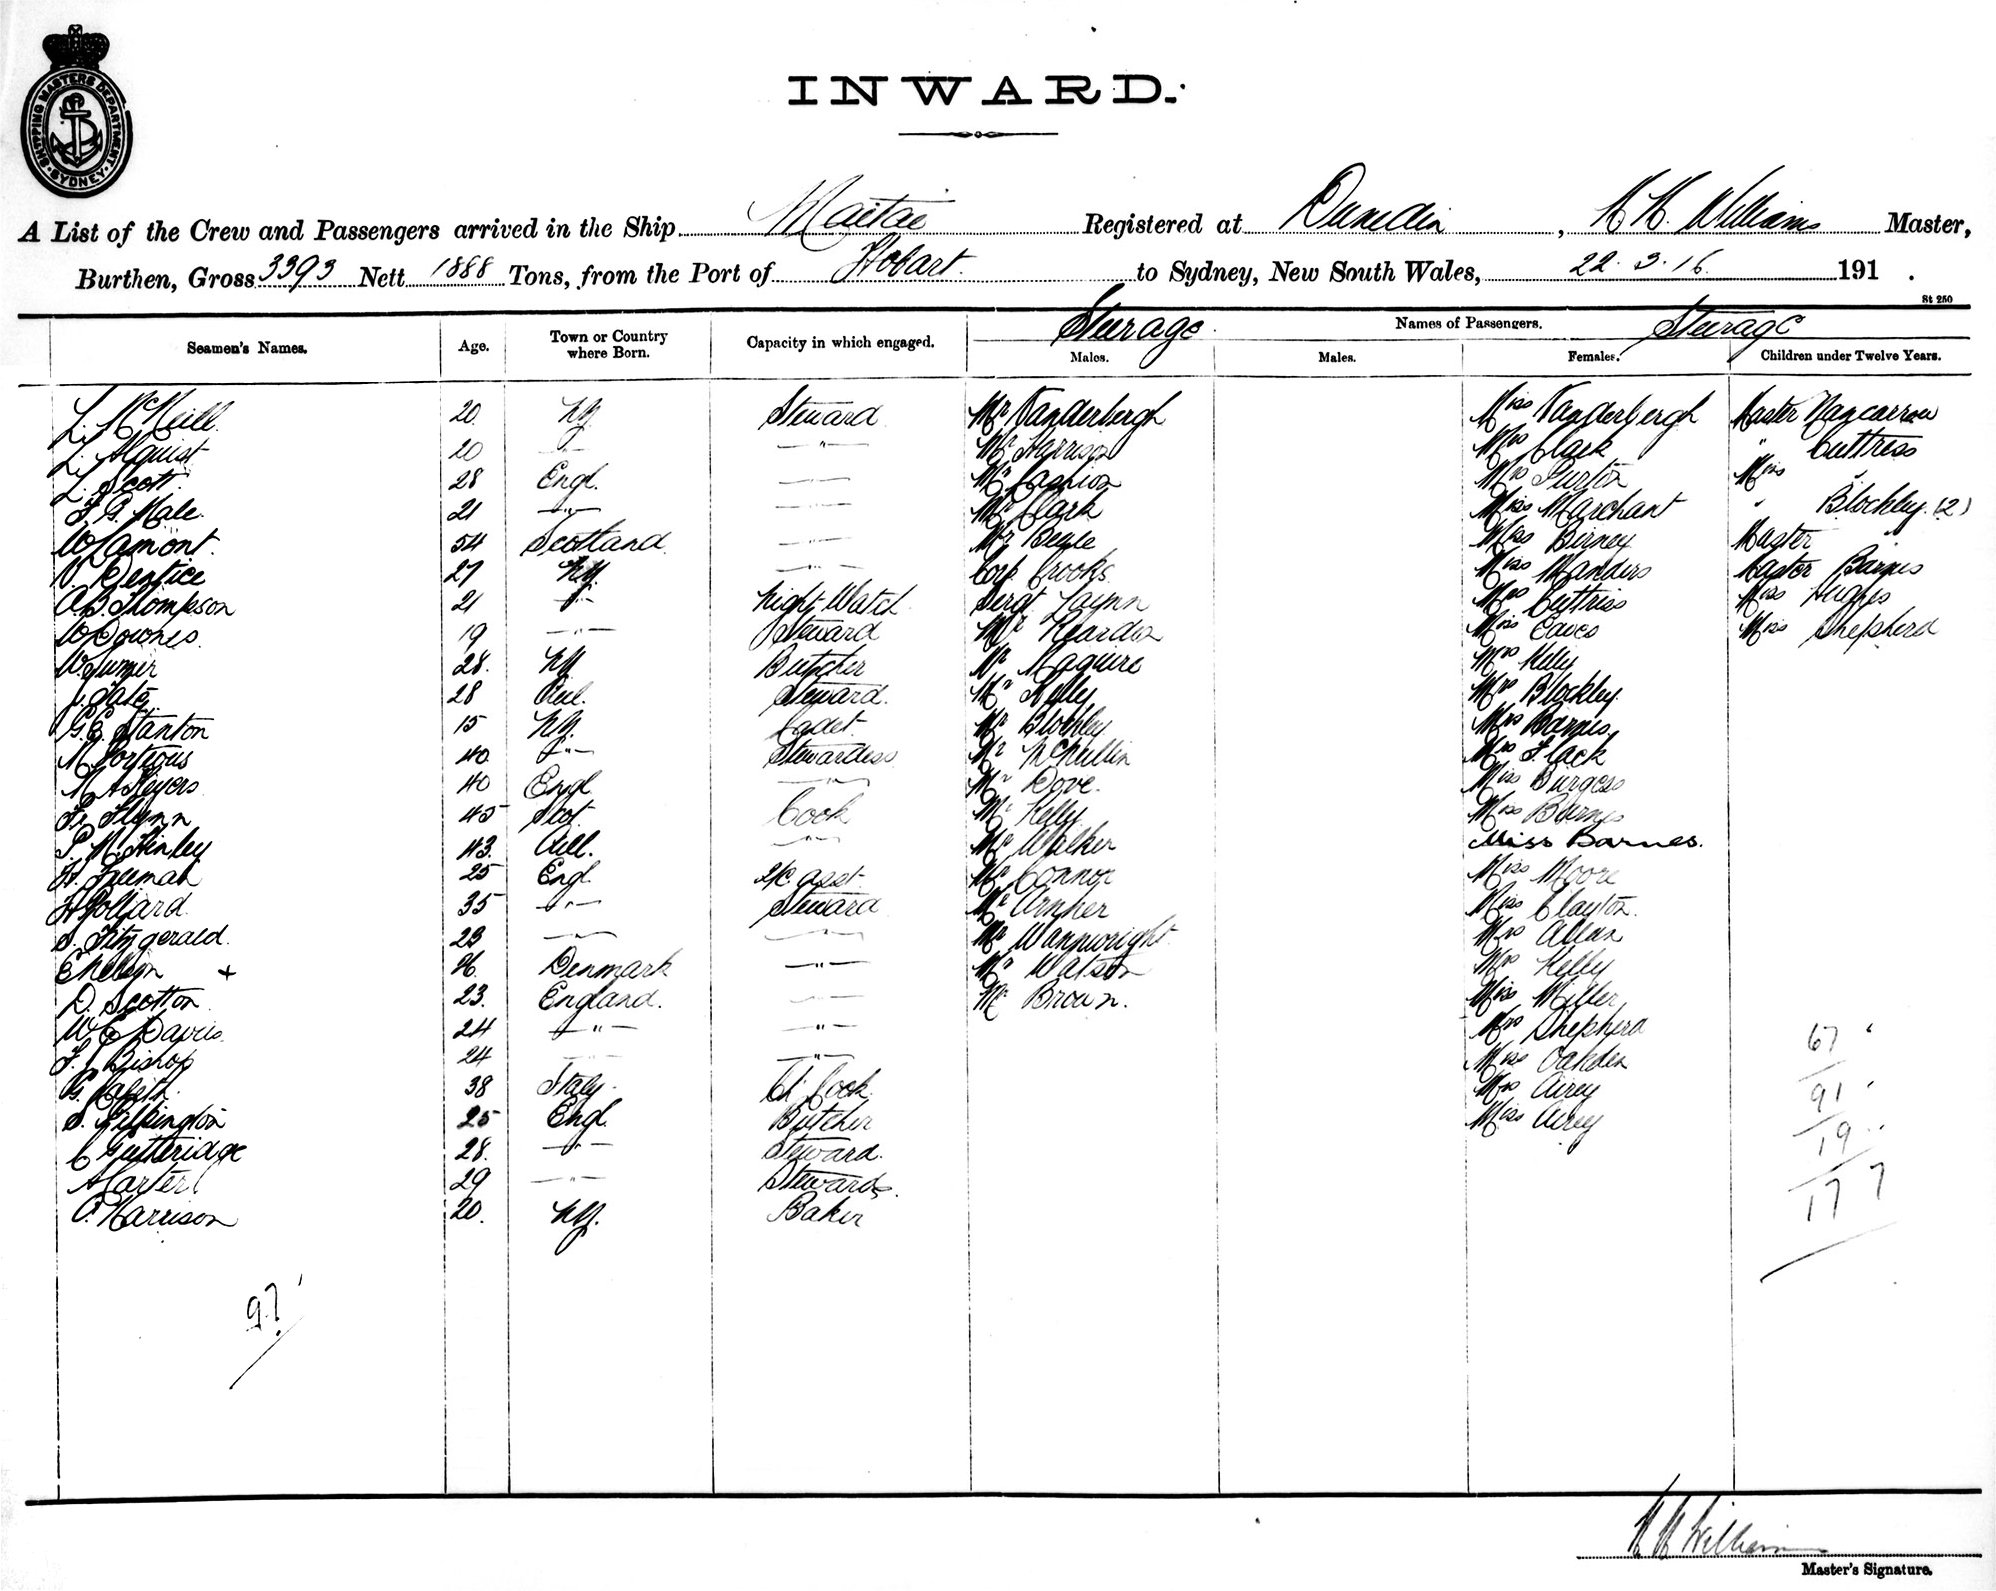 SHIPPING MASTERS DEPARTMENT
SYDNEY
INWARD.
A List of the Crew and Passengers arrived in the Ship Maitai Registered at Dunedin, Williams Master,
Burthen, Gross 3393 Nett 1888 Tons, from the Port of Hobart. to Sydney, New South Wales, 22.3.16. 191 .
St 250
Seamen's Names. Age. Town or Country where Born. Capacity in which engaged. Steerage. Names of Passengers. Steerage
Males. Males. Females. Children under Twelve Years.
L. McNeill 20 NZ Steward Mr Vanderbergh Miss Vanderbergh Master Nancarrow
L. Alquist 20 " " Mr Harrison Mrs Clark " Cuttress
L. Scott 28 Engl. " Mr Cashion Mrs Purton Miss "
F. G. Male 21 " " Mr Clark Miss Marchant " Blockley (2)
W Lamont. 54 Scotland " Mr Beale Miss Birney Master "
V. Prentice 27 NZ. " Corp. Crooks Miss Manders Master Barnes
A. B. Thompson 21 " Night Watch Sergt. Mrs Cuttriss Miss Hughes
W Downes. 19 " Steward Mr Reardon Miss Eaves Miss Shepherd
W. Turner 28. NZ Butcher Mr Maguire Mrs Kelly
J. Tate 28 Steward. Mr Kelly Mrs Blockley
G. E. Stanton 15 NZ. Cadet. Mr Blockley Mrs Barnes
M. Porteous 40 " Stewardess Mr McMullin Mrs Flack
M. A. Meyers 40 Engl " Mr Dove. Miss Burgess
Flynn 45 Scot. Cook Mr Kelly Miss Barnes
P. M. Hinley 43. " Mr Walker Miss Barnes.
H. Freeman 25 Engl. 2/c asst. Mr Connor Miss Moore
H Pollard. 35 " Steward Mr Miss Clayton.
S. Fitzgerald. 23 " " Mr Wannwright Mrs Allan
E Nelson + 26. Denmark " Mr Watson Mrs Kelly
D. Scotton 23. England. " Mr Brown. Miss Miller
W. E. Davis. 24 " " Mrs Shepherd
F. J. Bishop 24 " " Miss Oakden
G. 38 Italy. Ch Cook Mrs Airey
S. Gilkington 25 Engl. Butcher Miss Airey
C Gutteridge 28. " Steward.
A Carter 29 " Stewards.
C. Harrison 20. NZ. Baker
67
91
19
177
97
Williams
Master's Signature.